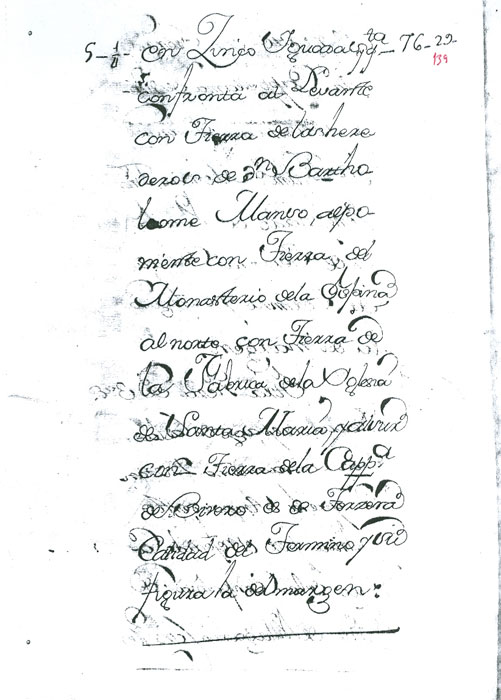 5-1/2- con Zinco Iguadas qta - 76-29
139
confronta al Levante
con Tierra de las here
deros de Dn Bartho
lome Manso, al po
niente con Tierra del
Monasterio de la Espina
al norte con Tierra de
la Fabrica de la Yglesia
de Santa Maria y al sur
con Tierra de la Capp.a
de es de Terzera
Calidad del Termino y su
figura la del margen: